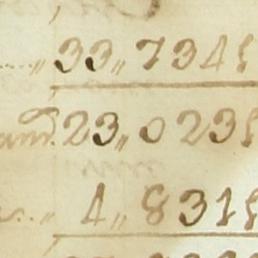 33,,7345
and 23,,0235
4,,8315